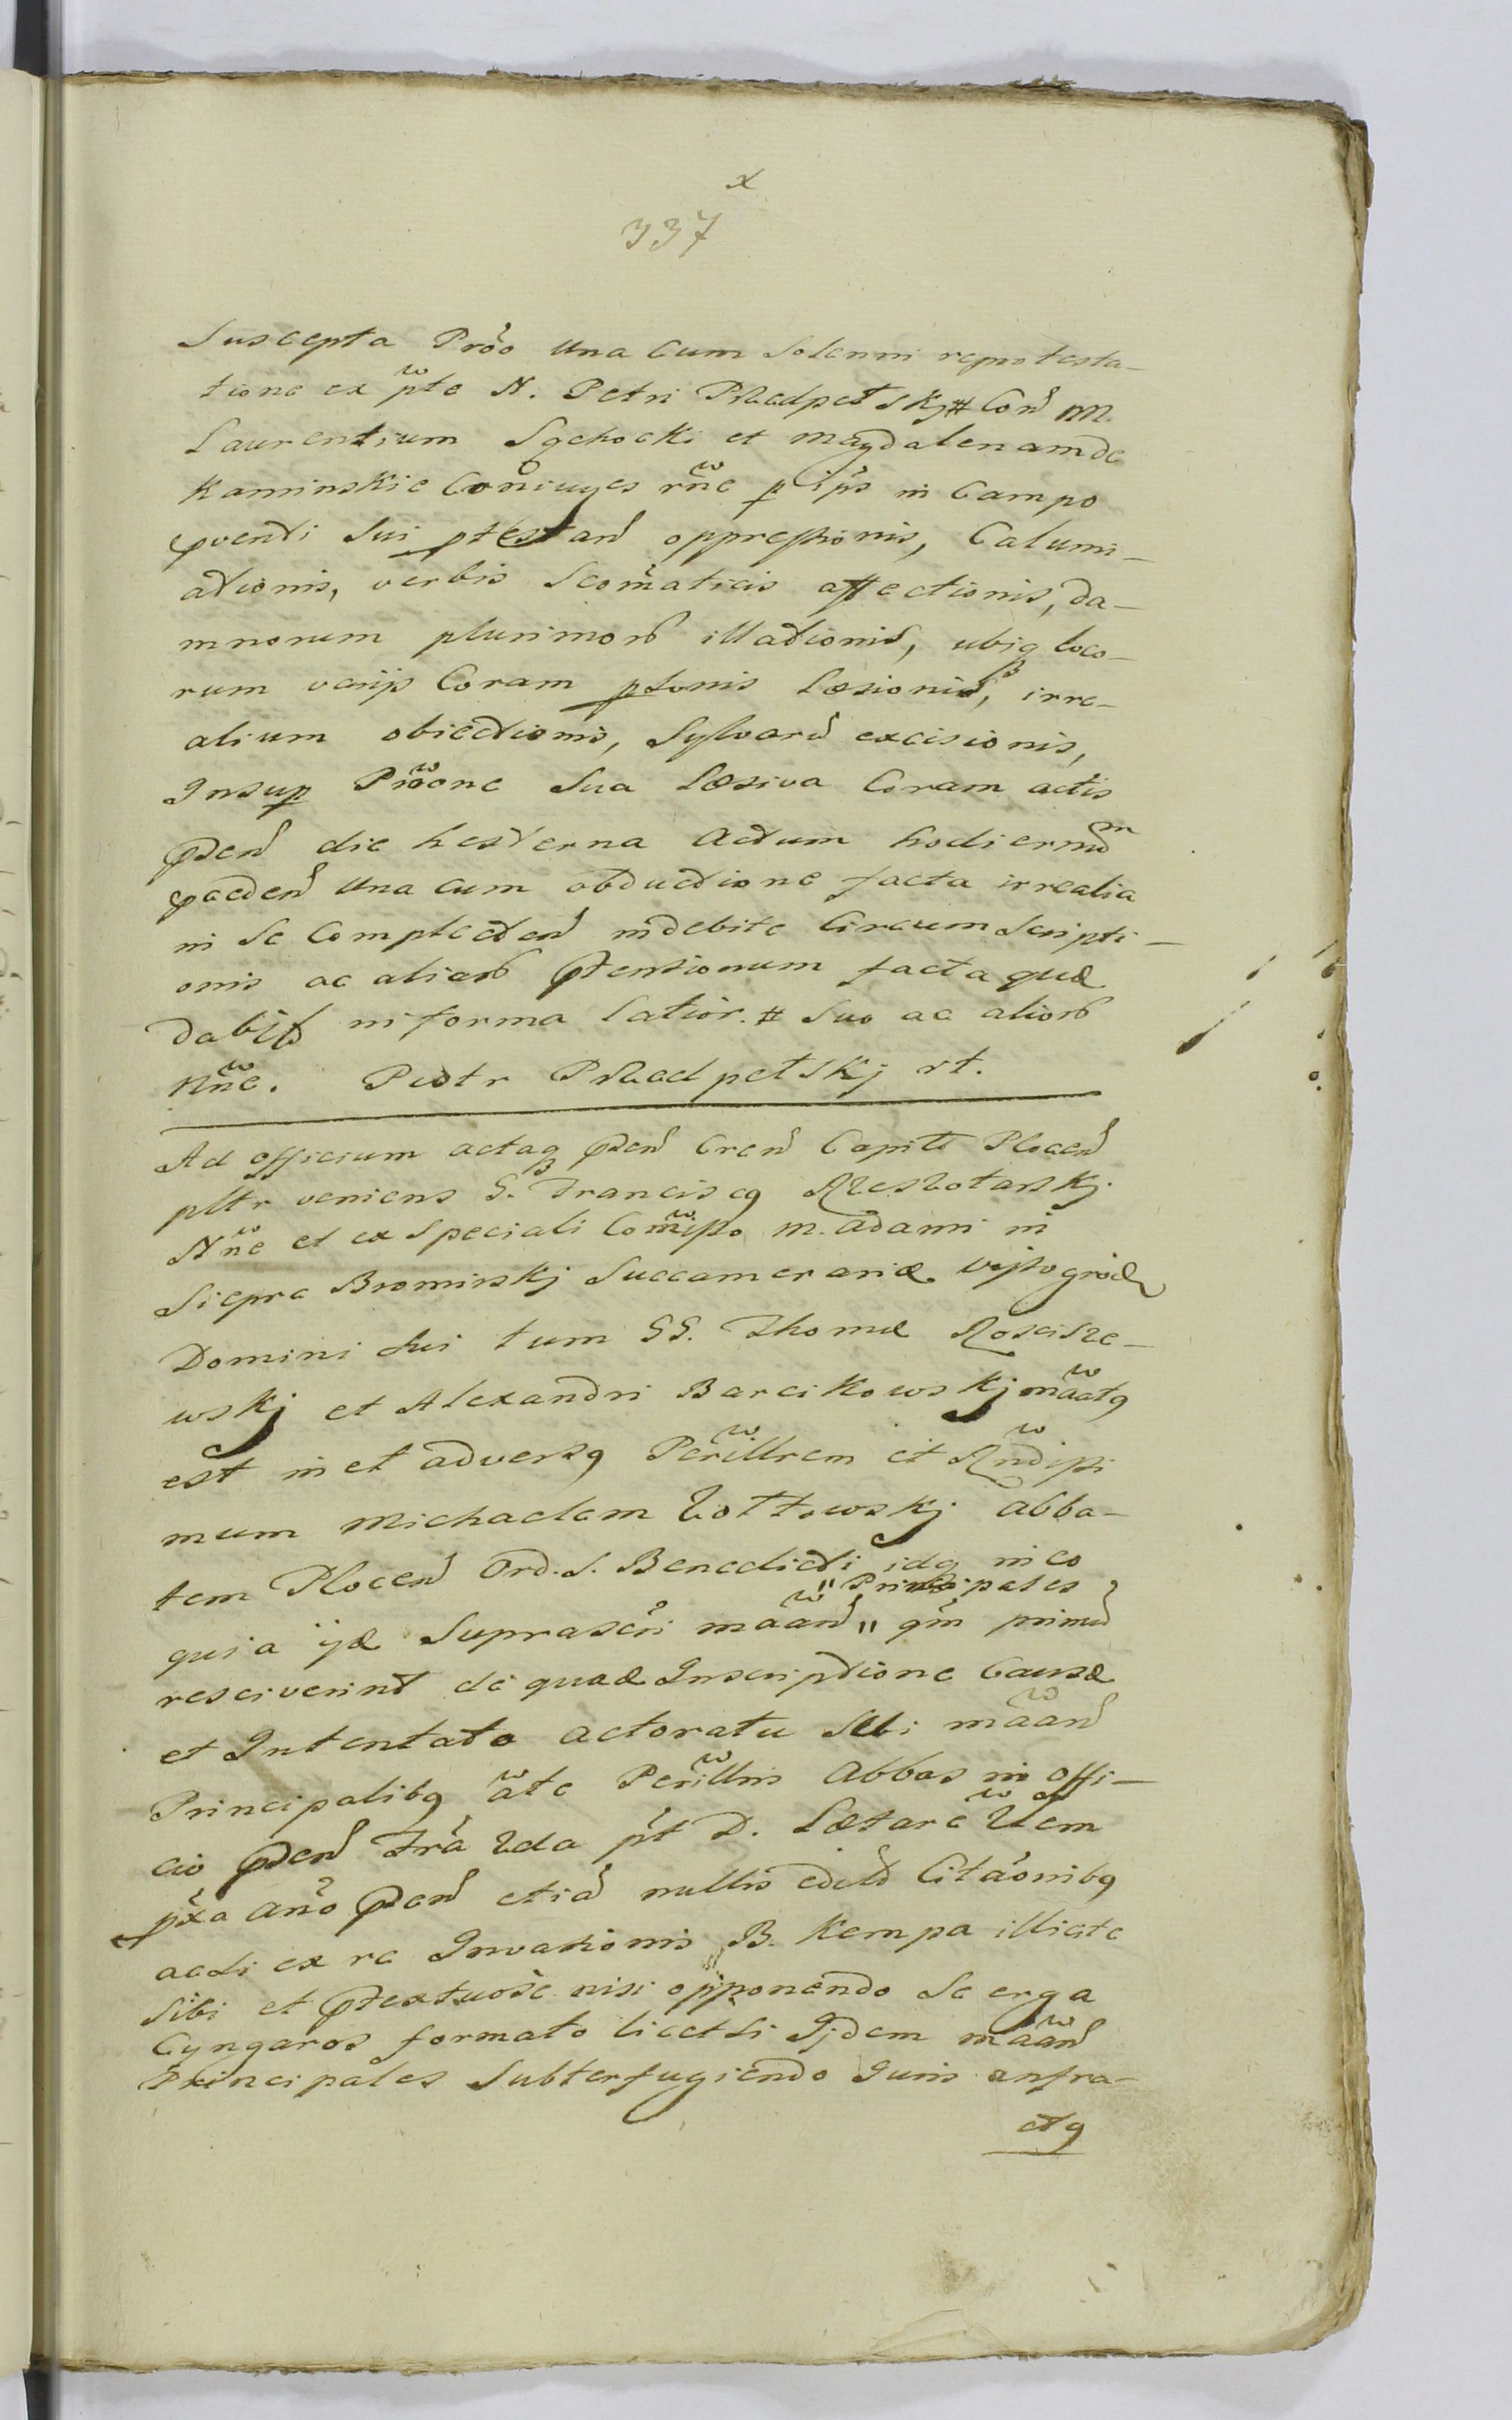 x
337
Suscepta Prõo una cum Solenni reprotesta-
tione ex pte N. Petri Przedpełskj # Con M.
Laurentium Sęchocki et Magdalenam de
Kaminskie Coniuges rñe p ips in Campo
pventi Sui ptestan oppressionis, Calumi-
ationis, verbis Scomaticis affectionis, da-
mnorum plurimorb illationis, ubiq loco-
rum variis Coram ptonis Læsionis, irre-
alium obiectionis, Sylvaru excisionis,
Insup Prõone Sua Læsiva Coram actis
pnden die hesterna actum hodiernum
pceden una cum obductione facta irrealia
in Se Complecten indebite Circumscripti-
onis ac aliarb ptensionum facta quæ
dabit in forma latior. # Suo ac aliorb
Nñe. Piotr Przedpełskj rt.
Ad officium actaq pnden Cren Capitl Plocen
pltr veniens G. Franciscq Rzeszotarskj
Nñe et ex Speciali Comisso M. Adami in
Siepre Brominskj Succamerariæ Wissogrod
Domini Sui tum GG. Thomæ Rosciszе-
wskj et Alexandri Barcikowskj mãatq
est in et adversq Perillrem et Rndissi
mum Michaelem Zołtowskj Abba-
tem Plocen Ord. S. Benedicti idq in eo
" Principales
quia ijd Suprascri mãan " qm primu
resciverint de quad Inscriptione Causæ
et Intentato actoratu Sibi mãan
Principalibq ãte Perillris Abbas in offi-
cio pnden Fra 2da pt D. Lætare Qem
pxa anno pnden etia nullis edtis Citãonibq
acti ex re Invasionis B. Kempa illicite
Sibi et ptextuose nisi opponendo Se erga
Cyngaros formato licet Si Ijdem mãan
Principales Subterfugiendo Iuris anfra-
ctq